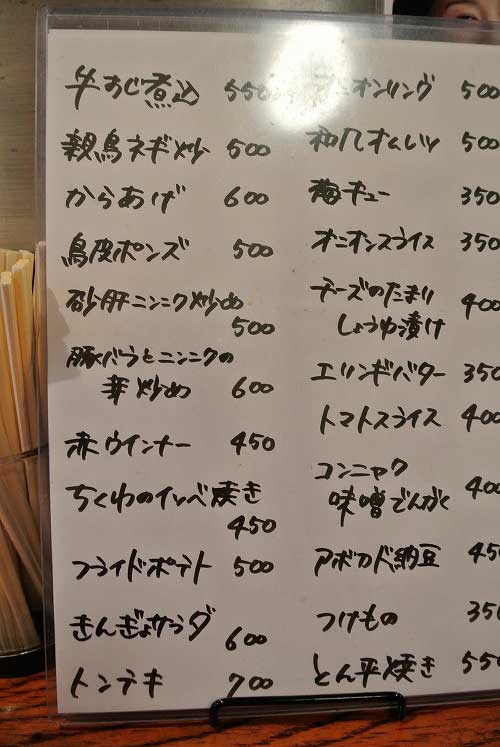 牛すじ煮込 550
親鳥ネギ炒 500
からあげ 600
鳥皮ポンズ 500
砂肝ニンニク炒め
500
豚バラとニンニクの
芽炒め 600
赤ウインナー 450
ちくわのイソベ焼き
450
フライドポテト 500
きんぎょサラダ 600
トンテキ 700
オニオンリング 500
和風オムレツ 500
梅キュー 350
オニオンスライス 350
チーズのたまり
しょうゆ漬け 400
エリンギバター 350
トマトスライス 400
コンニャク
味噌でんがく 400
アボカド納豆 450
つけもの 350
とん平焼き 550